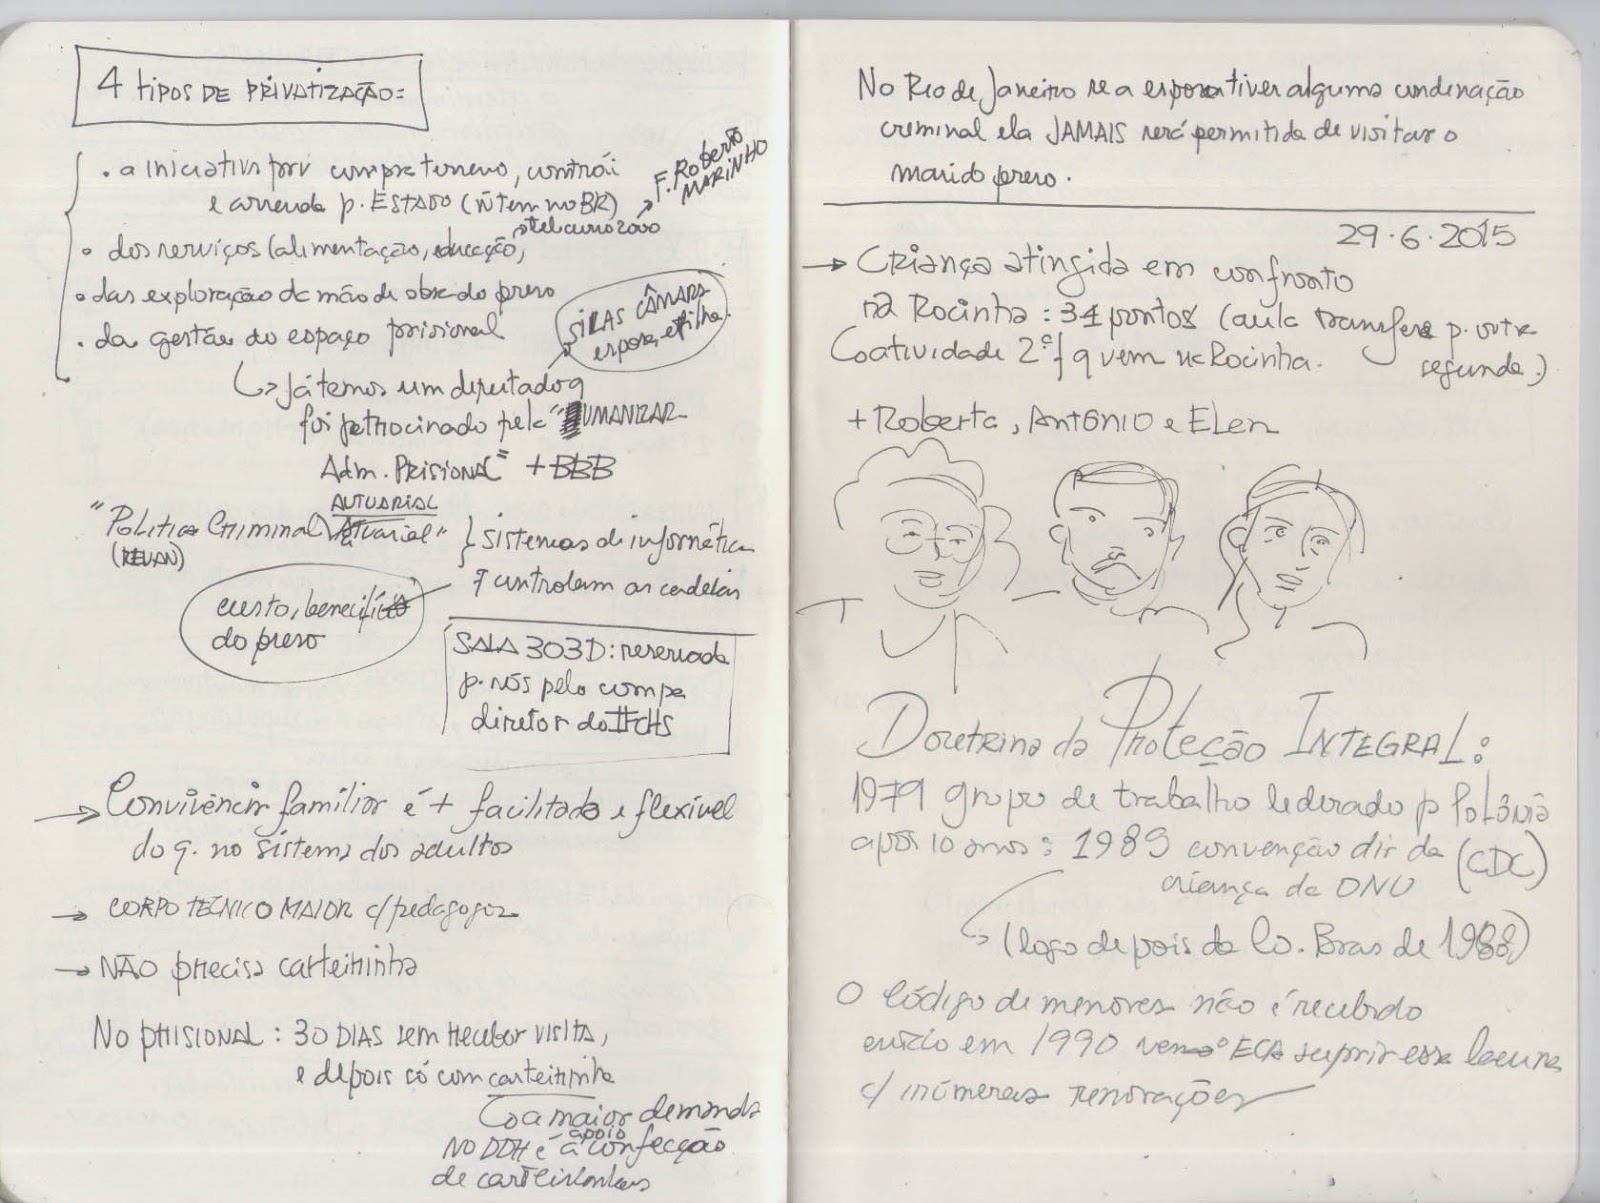 4 TIPOS DE PRIVATIZAÇÃO:
• a iniciativa priv compra terreno, constrói
e arrenda p. ESTADO (ñ tem no BR)
→ telecurso 2000
F. Roberto
MARINHO
• dos serviços (alimentação, educação,
• das exploração da mão de obra do preso
• da gestão do espaço prisional
SILAS CÂMARA
esposa e filha.
↳ Já temos um deputado q
foi patrocinado pela "UMANIZAR
Adm. PRISIONAL" + BBB
ATUARIAL
"Política Criminal Atuarial"
(REVAN)
} sistemas de informática
q controlam as cadeias
custo, benefício
do preso
SALA 303D: reservada
p. nós pelo compa
diretor do IFCHS
→ Convivência familiar é + facilitada e flexível
do q. no sistema dos adultos
→ CORPO TECNICO MAIOR c/ pedagogos
→ NÃO precisa carteirinha
NO PRISIONAL: 30 DIAS sem receber visita,
e depois só com carteirinha
↳ a maior demanda
NO DDH é apoio à confecção
de carteirinhas
No Rio de Janeiro se a esposa tiver alguma condenação
criminal ela JAMAIS será permitida de visitar o
marido preso.
29.6.2015
→ Criança atingida em confronto
na Rocinha: 34 pontos (aula transfere p. outra
segunda.)
Coatividade 2ª f q vem na Rocinha.
+ Roberta, ANTÔNIO e ELEN
Doutrina da Proteção INTEGRAL:
1979 grupo de trabalho liderado p Polônia
após 10 anos: 1989 convenção dir da (CDC)
criança da ONU
↳ (logo depois da Co. Bras de 1988)
O Código de menores não é recebido
então em 1990 vem o ECA suprir essa lacuna
c/ inúmeras renovações